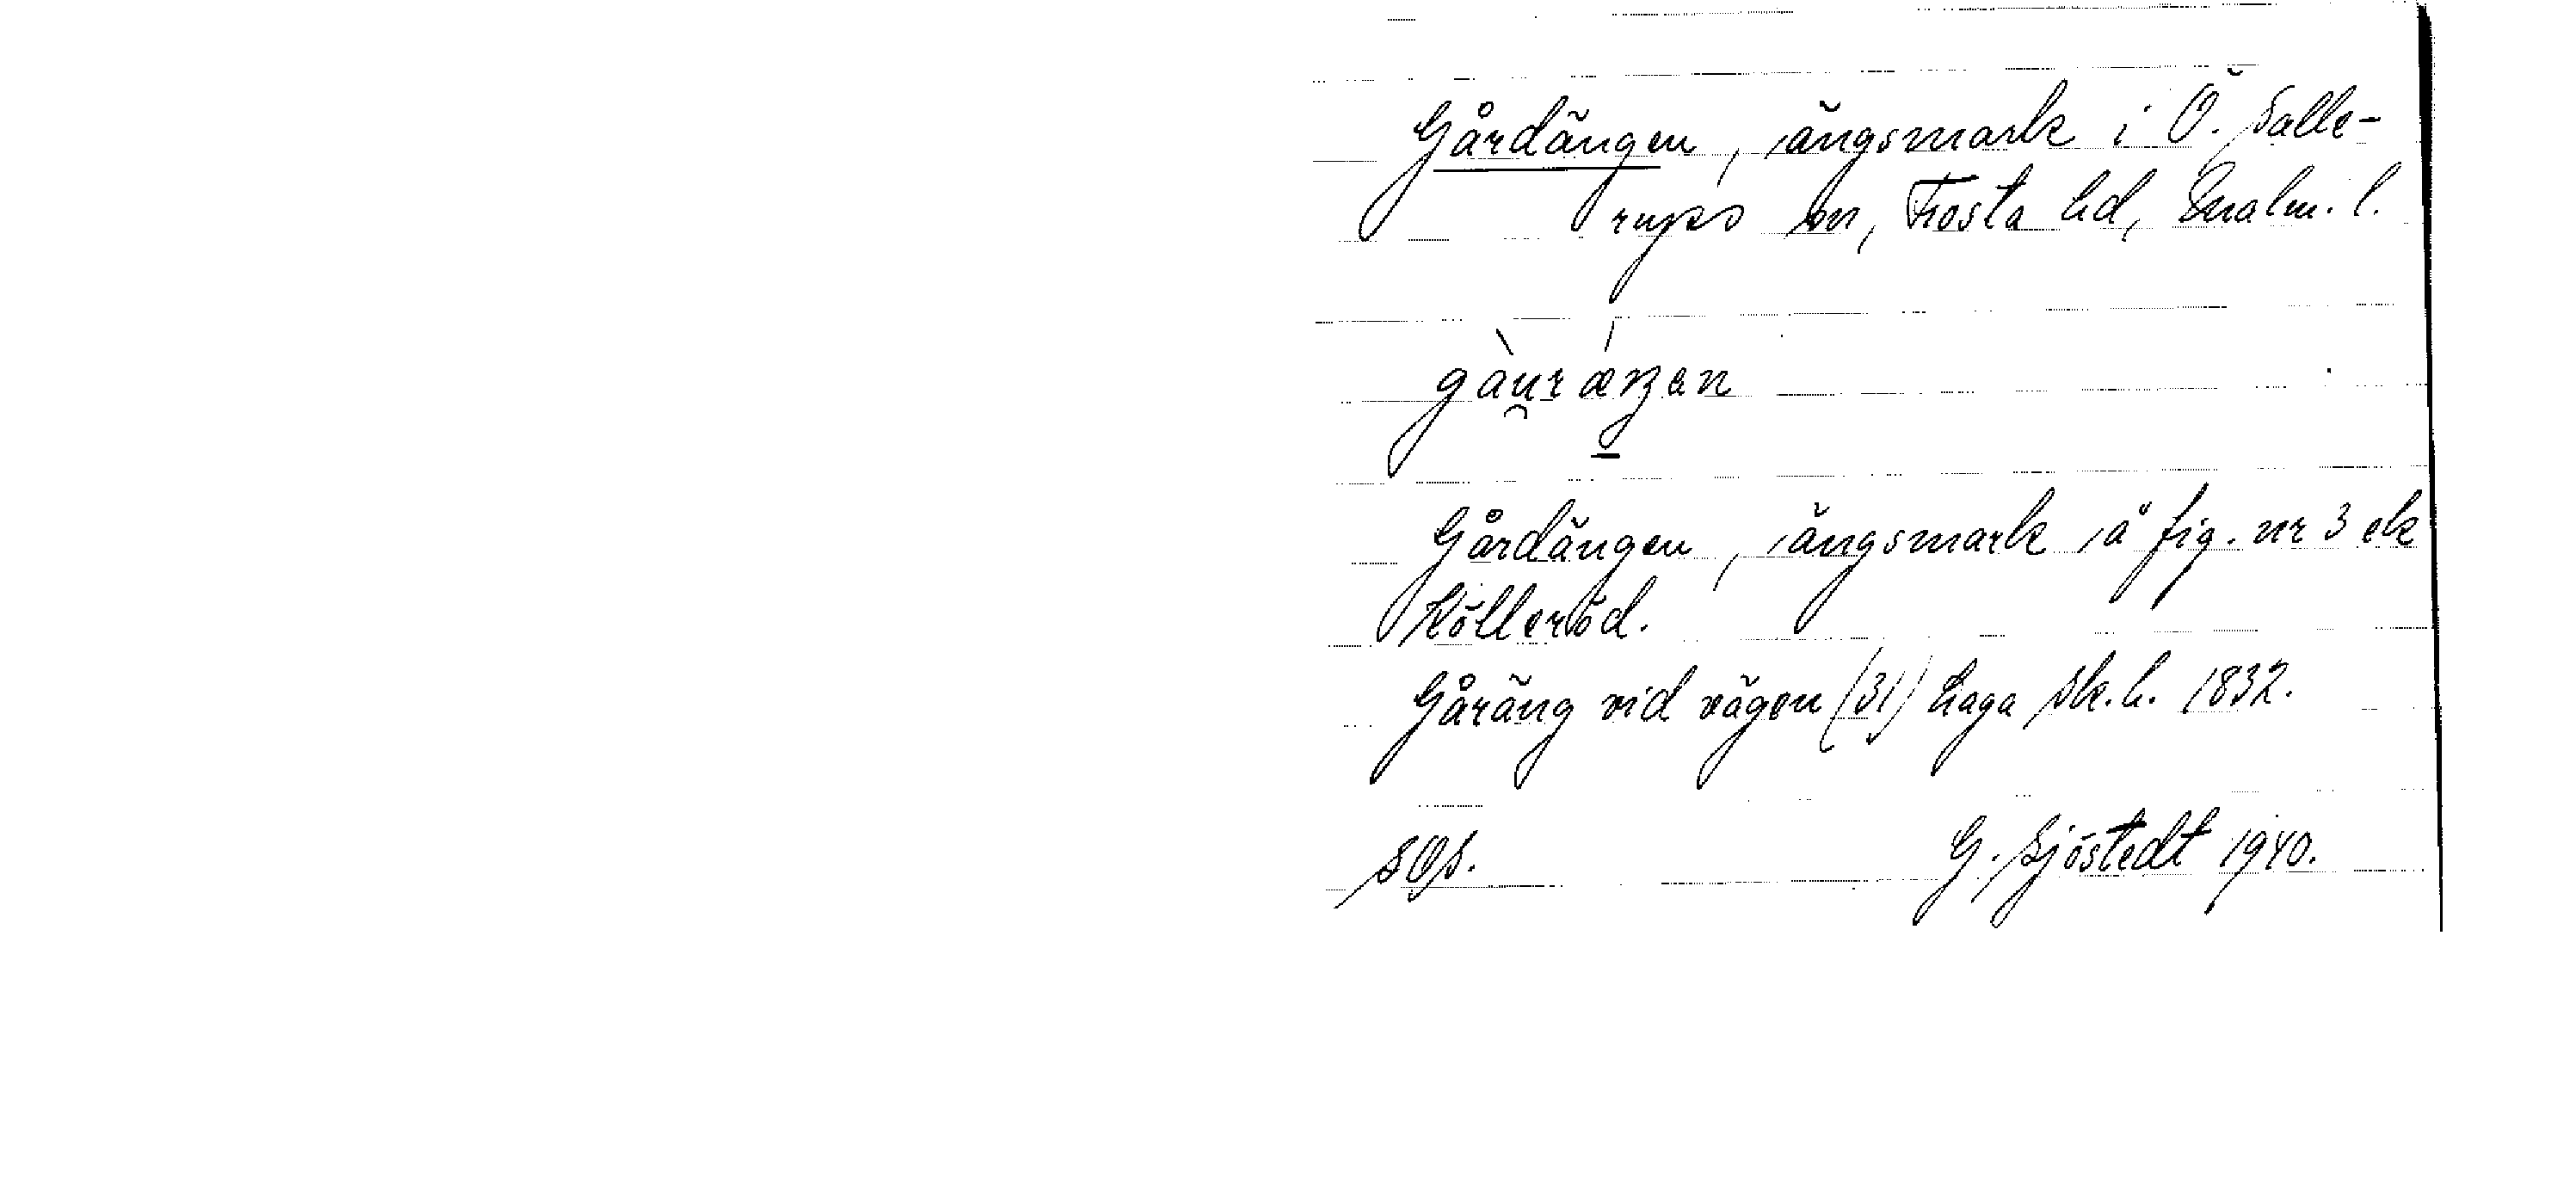 Gårdängen, ängsmark i Ö. Salle-
rups sn, Frosta hd, Malm. l.
gàu̯ráŋən
Gårdängen, ängsmark å fig. nr 3 ek
Kölleröd.
Gåräng vid vägen (31) Laga sk. h. 1832.
SOS. G. Sjöstedt 1940.